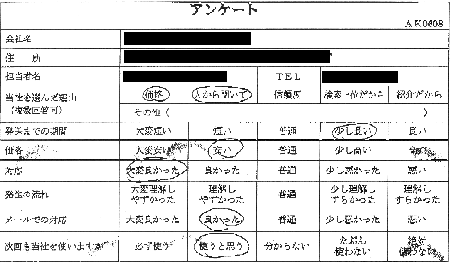 アンケート
AK0608
会社名
住 所
担当者名 TEL
当社を選んだ理由 価格 人から聞いて 信頼度 検索上位だから 紹介だから
(複数回答可) その他( )
発送までの期間 大変短い 短い 普通 少し長い 長い
価格 大変安い 安い 普通 少し高い
対応 大変良かった 良かった 普通 少し悪かった 悪い
発注の流れ 大変理解しやすかった 理解しやすかった 普通 少し理解しづらかった 理解しづらかった
メールでの対応 大変良かった 良かった 普通 少し悪かった 悪い
次回も当社を使いますか 必ず使う 使うと思う 分からない たぶん使わない 絶対使わない